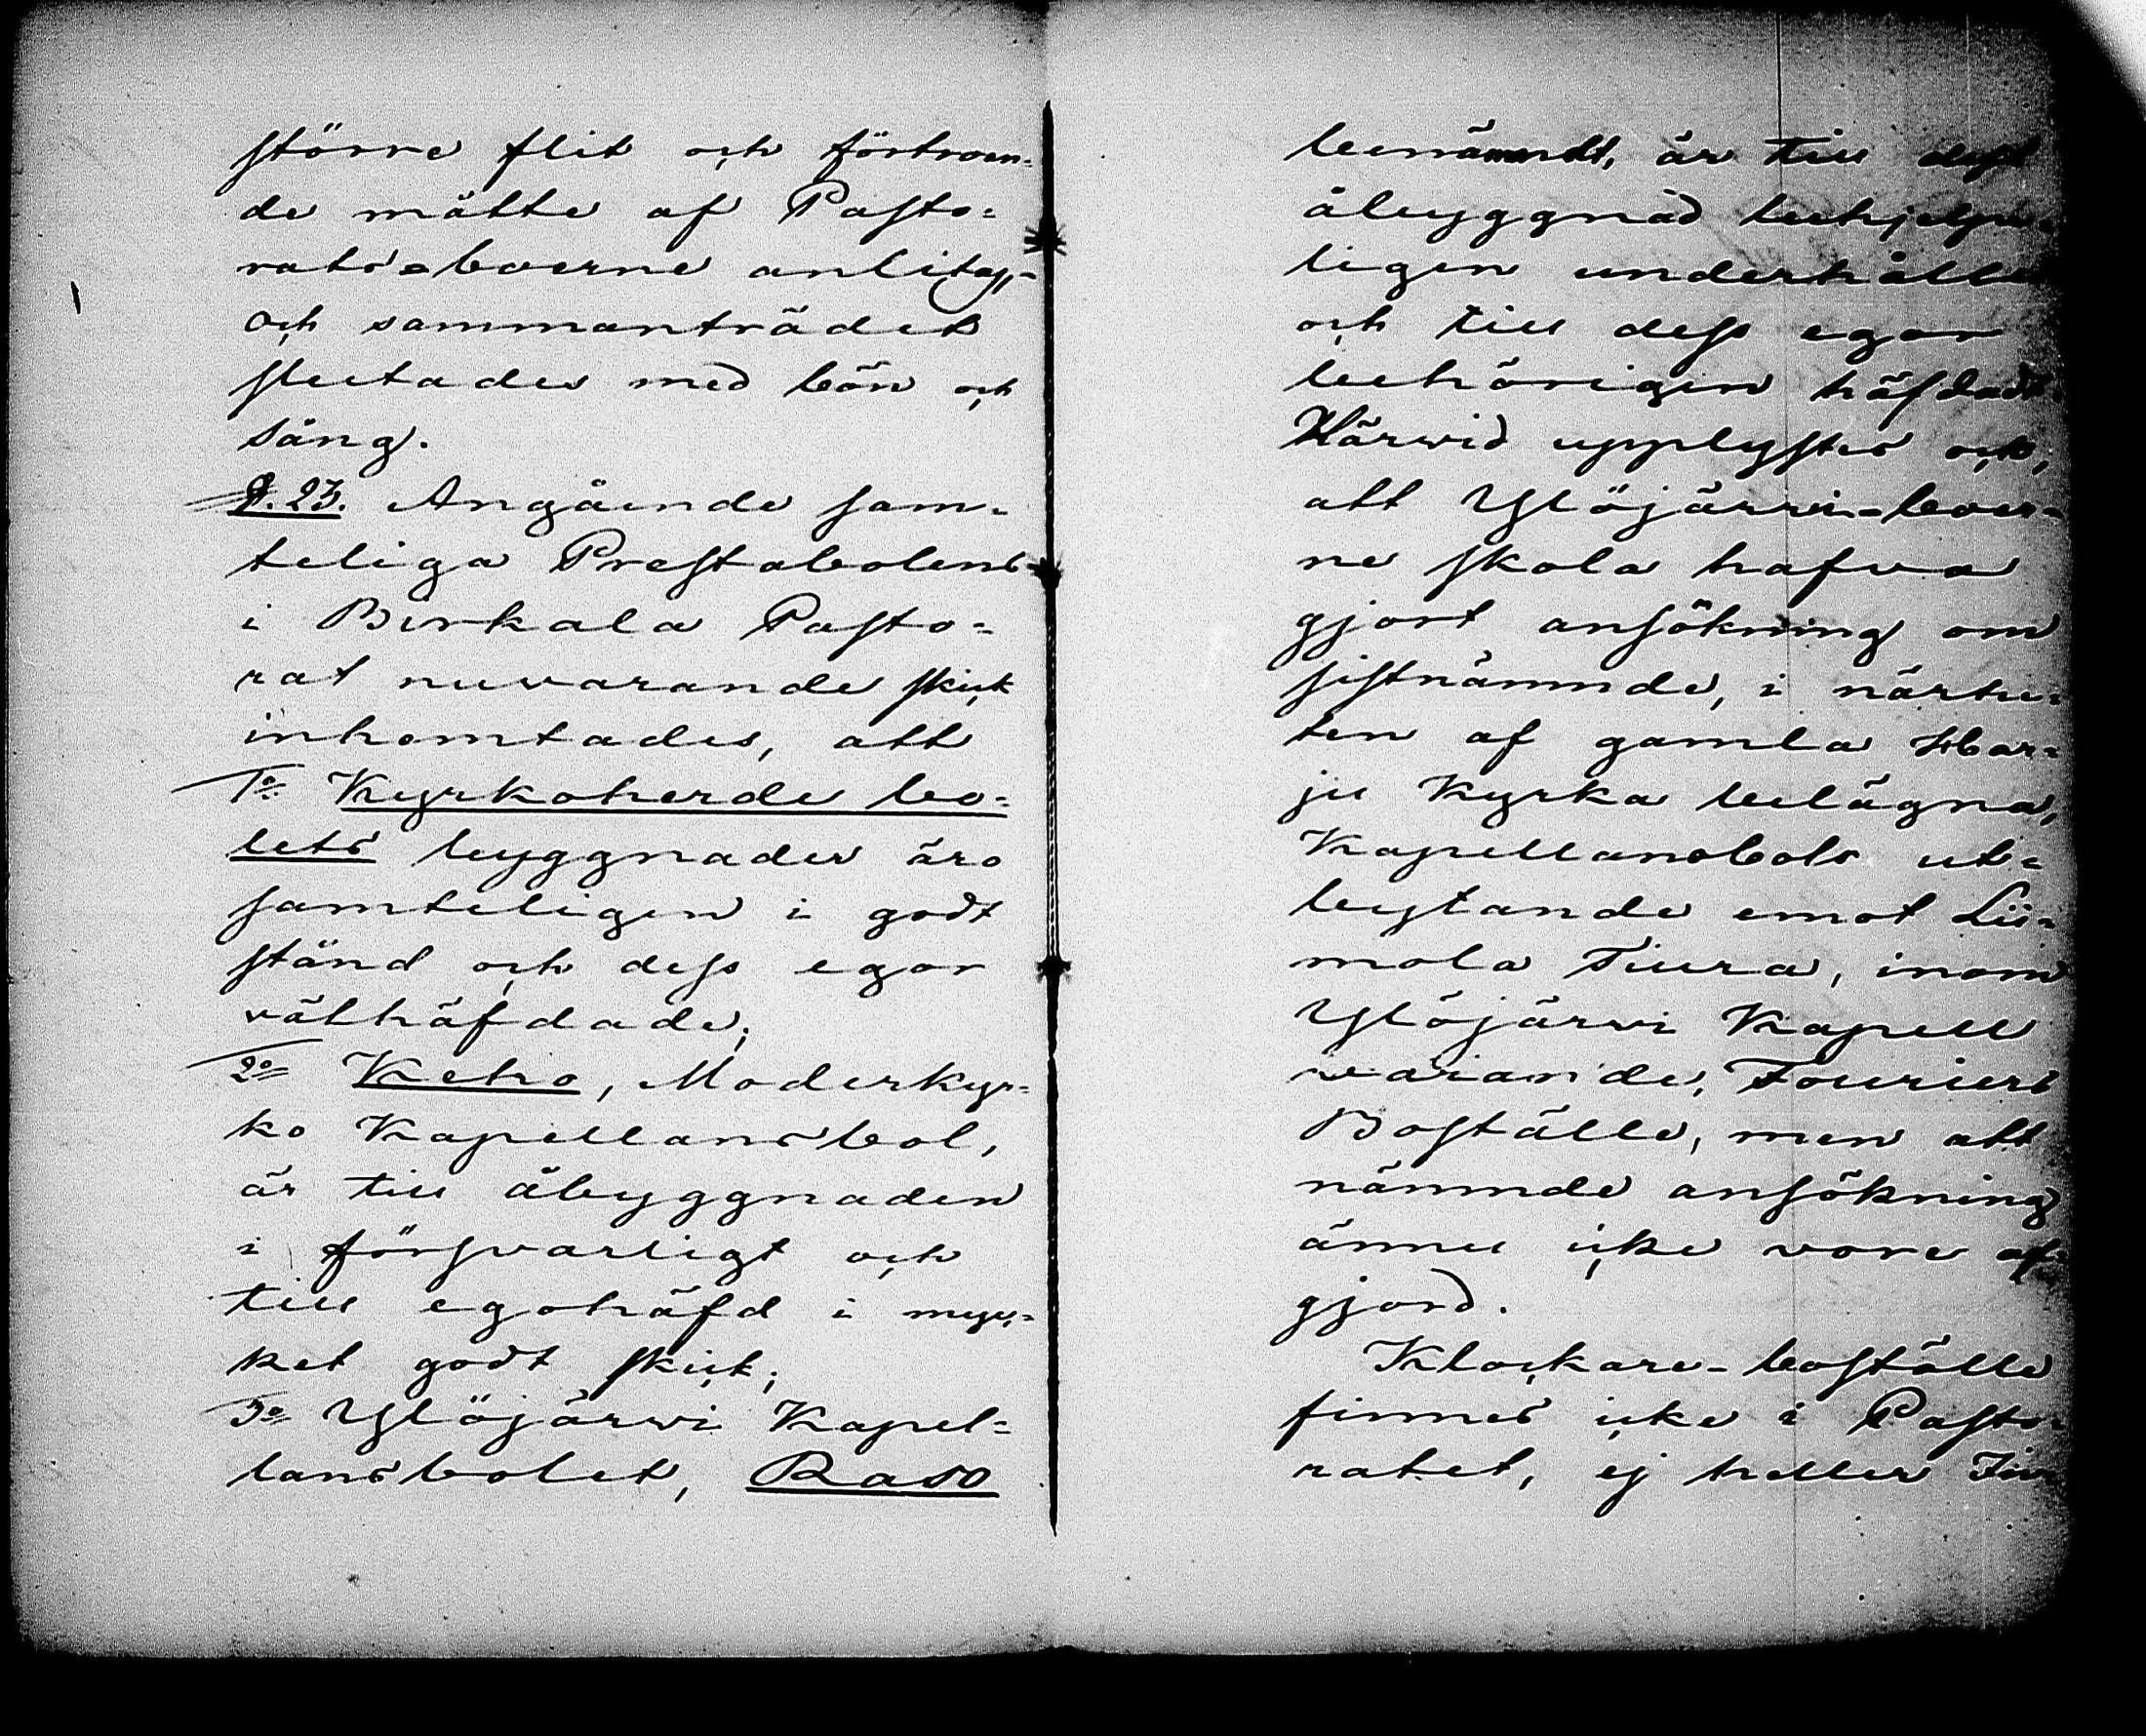 större flit och förtroen-
de måtte af Pasto-
rats-boerne anlitas,-
och sammanträdet
slutades med bön och
sång.
§. 23. Angående sam-
teliga Prestabolens
i Birkala Pasto-
rat nuvarande skick
inhemtades, att
1o Kyrkoherde bo-
lets byggnader äro
samteligen i godt
stånd och dess egor
välhäfdade;
2o Keho, Moderkyr-
ko Kapellansbol,
är till åbyggnaden
i försvarligt och
till egohäfd i myc-
ket godt skick;
3o Ylöjärvi Kapel-
lansbolet, Raso
benämndt, är till dess
åbyggnad behjelpe-
ligen underhållet
och till dess egor
behörigen häfdadt.
Härvid upplystes ock,
att Ylöjärvi-boer-
ne skola hafva
gjort ansökning om
sistnämnde, i närhe-
ten af gamla Har-
ju Kyrka belägna,
Kapellansbols ut-
bytande emot Lii-
mola Tiura, inom
Ylöjärvi Kapell
varande, Fouriers
Boställe, men att
nämnde ansökning
ännu icke vore af-
gjord.
Klockare-boställe
finnes icke i Pasto-
ratet, ej heller